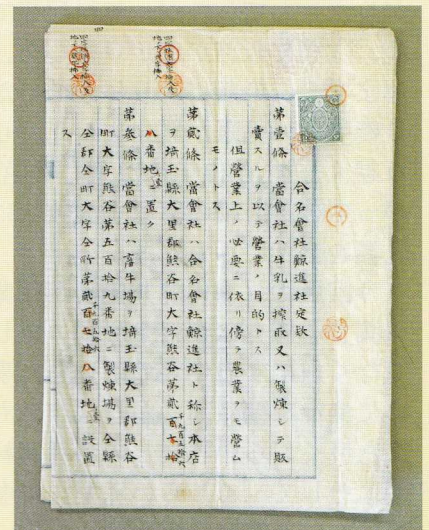 合名會社鯨進社定欵
第壹條 當會社ハ牛乳ヲ搾取又ハ製煉シテ販
賣スルヲ以テ營業ノ目的トス
但營業上ノ必要ニ依リ傍ラ農業ヲモ營ム
モノトス
第貳條 當會社ハ合名會社鯨進社ト称シ本店
ヲ埼玉縣大里郡熊谷町大字熊谷第貳百七拾
八番地ニ置ク
第叁條 當會社ハ畜牛場ヲ埼玉縣大里郡熊谷
町大字熊谷第五百拾九番地ニ製煉場ヲ仝縣
仝郡仝町大字仝所第貳百七拾八番地ニ設置
ス